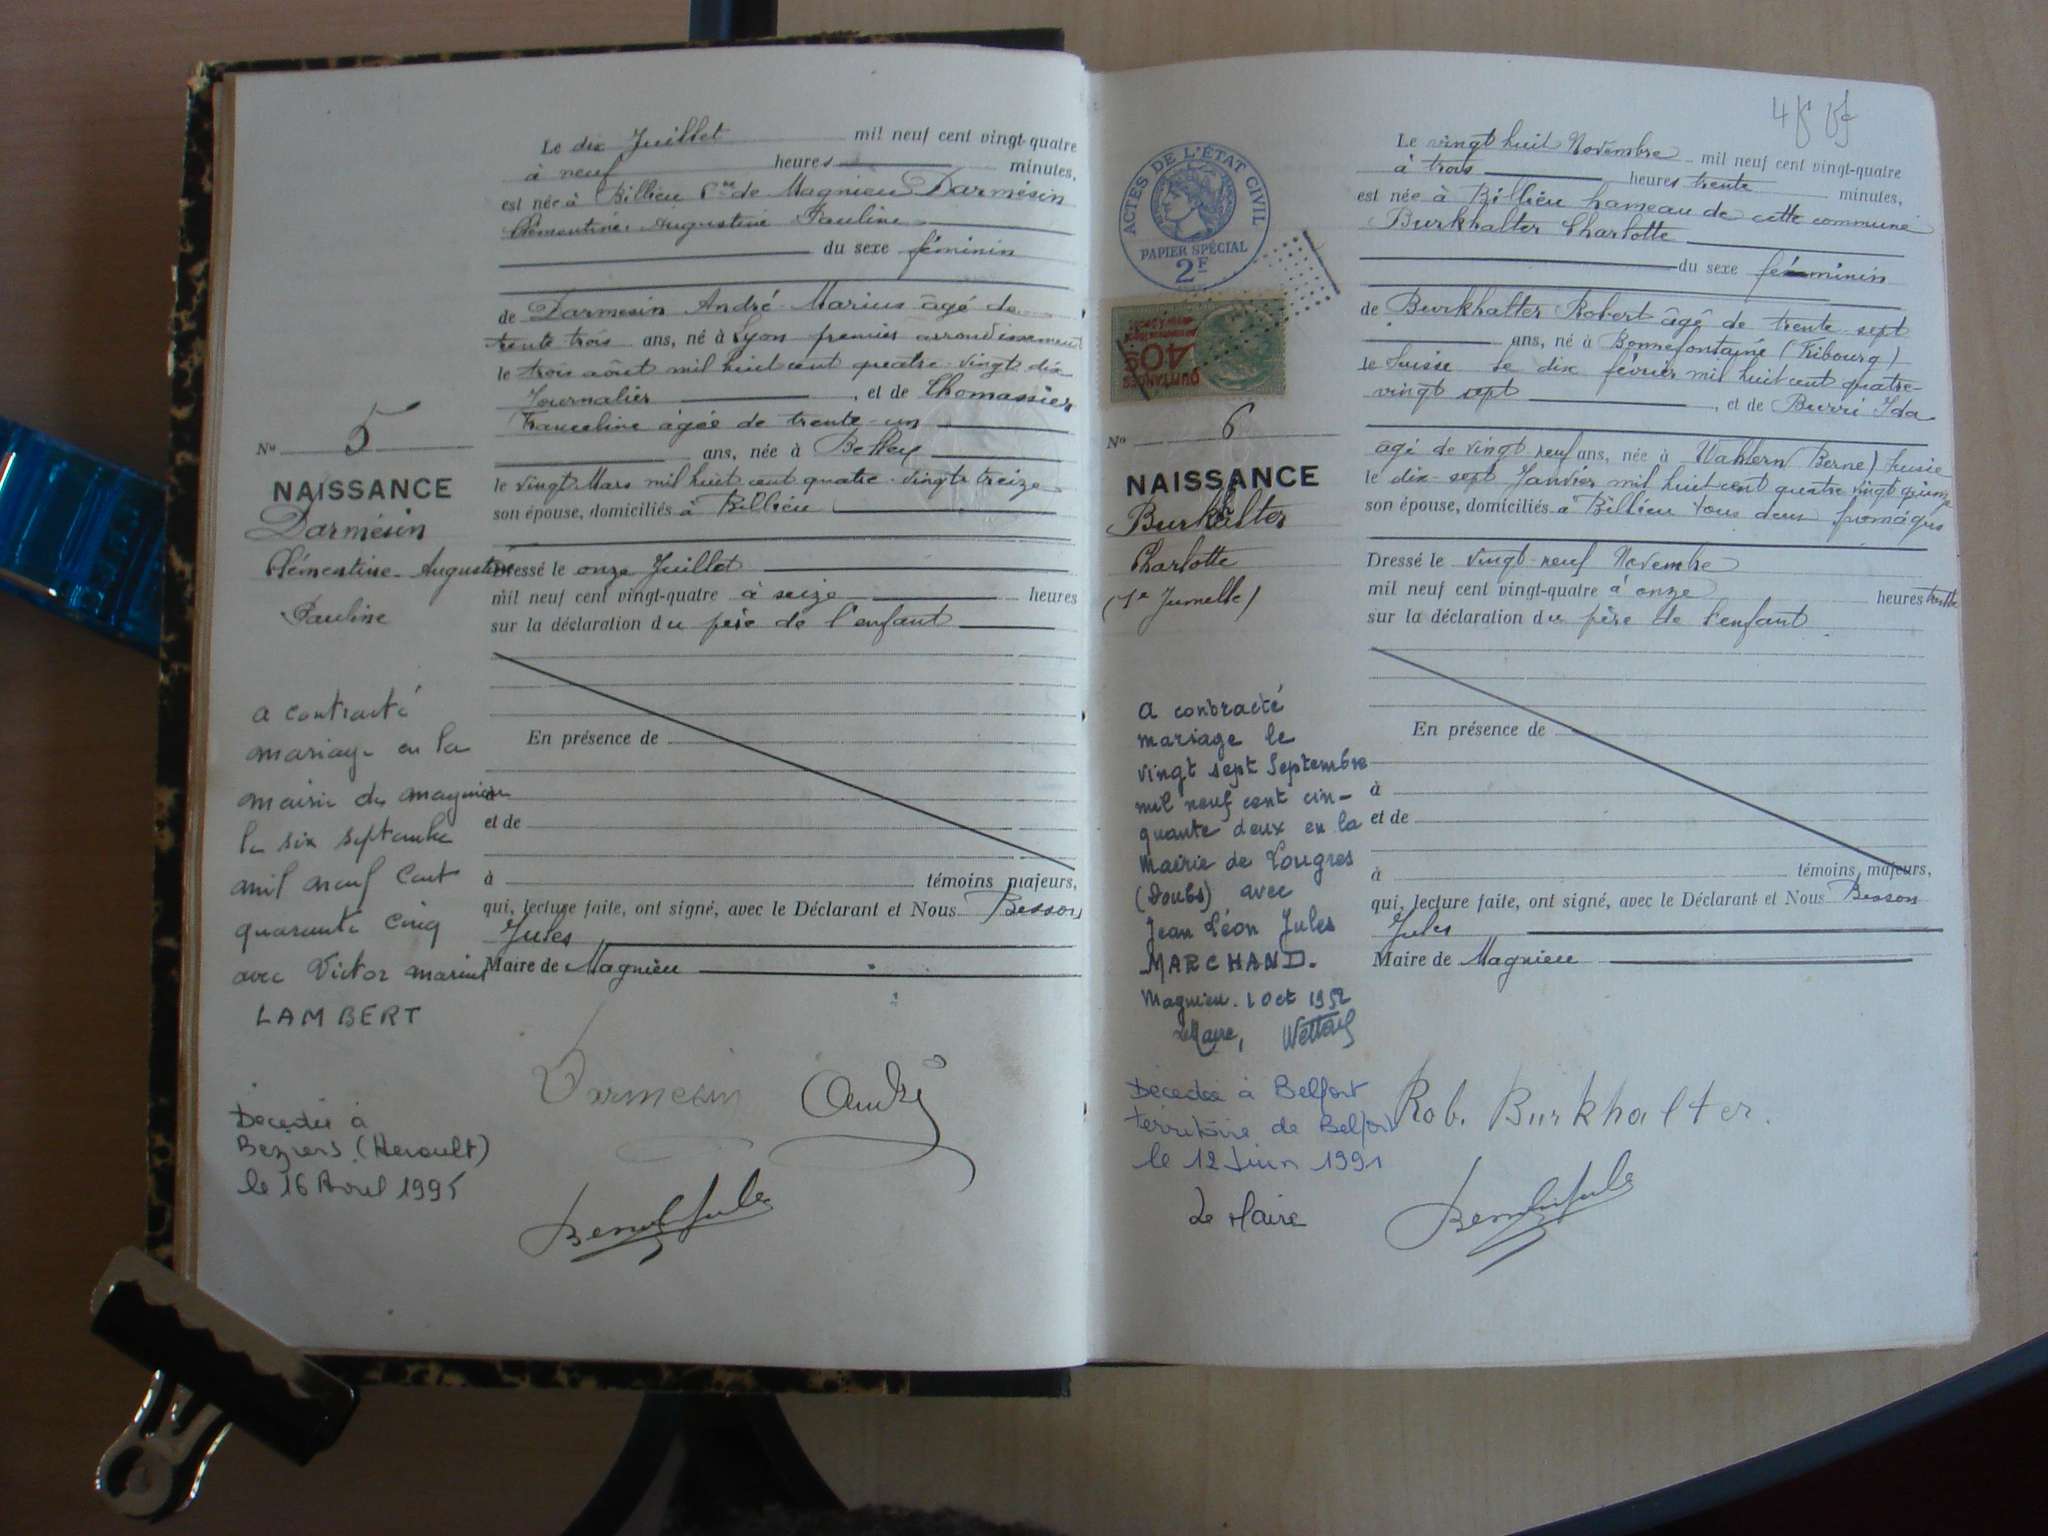 Le dix Juillet mil neuf cent vingt-quatre
à neuf heures minutes,
est née à Billieu Cne de Magnieu Darmésin
Clémentine Augustine Pauline
du sexe féminin
de Darmesin André Marius âgé de
trente trois ans, né à Lyon premier arrondissement
le trois août mil huit cent quatre-vingt dix
Journalier, et de Thomassier
Franceline âgée de trente-un
ans, née à Belley
le vingt Mars mil huit cent quatre-vingts treize
son épouse, domiciliés à Billieu
Dressé le onze Juillet
mil neuf cent vingt-quatre à seize heures
sur la déclaration du père de l'enfant
En présence de
à
et de
à témoins majeurs,
qui, lecture faite, ont signé, avec le Déclarant et Nous Besson
Jules
Maire de Magnieu
Darmesin André
No 5
NAISSANCE
Darmésin
Clémentine-Augustine
Pauline
a contracté
mariage en la
mairie de magnieu
le six septembre
mil neuf cent
quarante cinq
avec Victor marius
LAMBERT
Décédée à
Beziers (Herault)
le 16 Avril 1995
48
Le vingt huit Novembre mil neuf cent vingt-quatre
à trois heures trente minutes,
est née à Billieu hameau de cette commune
Burkhalter Charlotte
du sexe féminin
de Burkhalter Robert âgé de trente-sept
ans, né à Bonnefontaine (Fribourg)
le Suisse le dix février mil huit cent quatre-
vingt sept, et de Burri Ida
agé de vingt neuf ans, née à Wahlern (Berne) Suisse
le dix-sept Janvier mil huit cent quatre vingt quinze
son épouse, domiciliés à Billieu tous deux
Dressé le vingt-neuf Novembre
mil neuf cent vingt-quatre à onze heures trente
sur la déclaration du père de l'enfant
En présence de
à
et de
à témoins majeurs,
qui, lecture faite, ont signé, avec le Déclarant et Nous Besson
Jules
Maire de Magnieu
Rob. Burkhalter.
ACTES DE L'ÉTAT CIVIL
PAPIER SPÉCIAL
2F
QUITTANCES
40c
No 6
NAISSANCE
Burkhalter
Charlotte
(1e Jumelle)
a contracté
mariage le
vingt sept Septembre
mil neuf cent cin-
quante deux en la
Mairie de Lougres
(Doubs) avec
Jean Léon Jules
MARCHAND.
Magnieu. 1 Oct 1952
Le Maire,
Décédée à Belfort
territoire de Belfort
le 12 Juin 1991
Le Maire